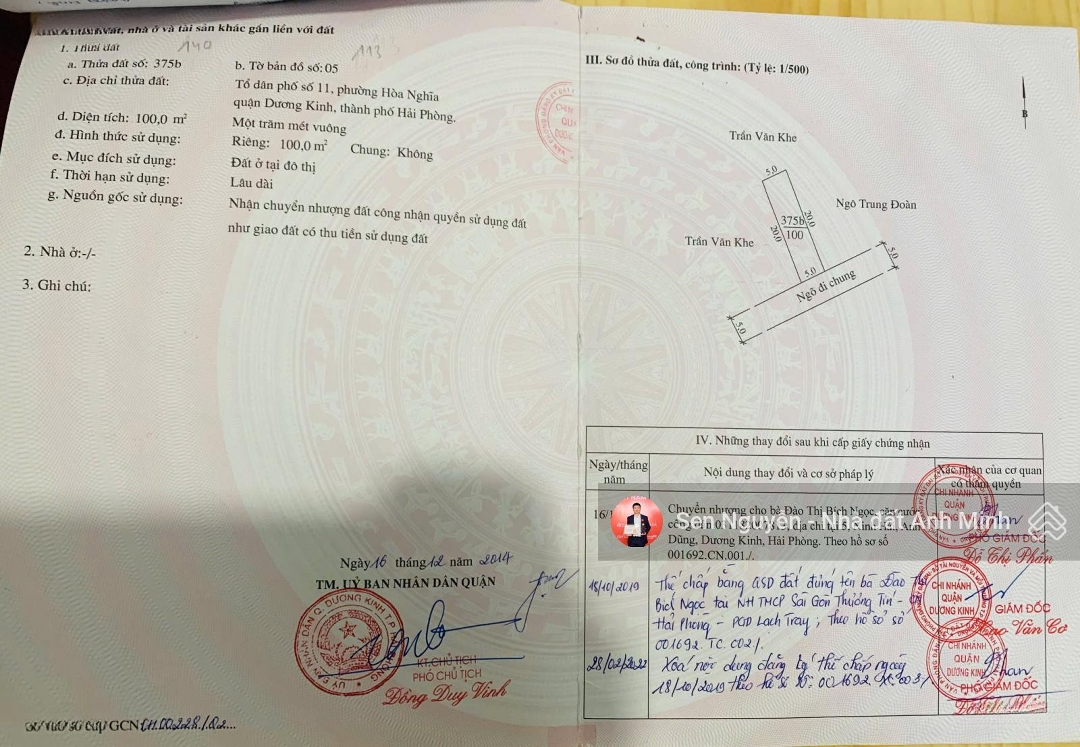 nhà ở và tài sản khác gắn liền với đất
1. Thửa đất
140
113
a. Thửa đất số: 375b
b. Tờ bản đồ số: 05
c. Địa chỉ thửa đất:
Tổ dân phố số 11, phường Hòa Nghĩa
quận Dương Kinh, thành phố Hải Phòng.
d. Diện tích: 100,0 m²
Một trăm mét vuông
đ. Hình thức sử dụng:
Riêng: 100,0 m² Chung: Không
e. Mục đích sử dụng:
Đất ở tại đô thị
f. Thời hạn sử dụng:
Lâu dài
g. Nguồn gốc sử dụng:
Nhận chuyển nhượng đất công nhận quyền sử dụng đất
như giao đất có thu tiền sử dụng đất
2. Nhà ở:-/-
3. Ghi chú:
Ngày 16 tháng 12 năm 2014
TM. UỶ BAN NHÂN DÂN QUẬN
KT.CHỦ TỊCH
PHÓ CHỦ TỊCH
Đồng Duy Vinh
Số vào sổ cấp GCN
III. Sơ đồ thửa đất, công trình: (Tỷ lệ: 1/500)
B
Trần Văn Khe
5,0
Ngô Trung Đoàn
375b
100
20,0
20,0
Trần Văn Khe
5,0
5,0
Ngõ đi chung
5,0
IV. Những thay đổi sau khi cấp giấy chứng nhận
Ngày/tháng năm
Nội dung thay đổi và cơ sở pháp lý
Xác nhận của cơ quan có thẩm quyền
Chuyển nhượng cho bà Đào Thị Bích Ngọc, căn cước
Sen Nguyễn - Nhà đất Anh Minh
Dũng, Dương Kinh, Hải Phòng. Theo hồ sơ số
001692.CN.001./.
CHI NHÁNH
QUẬN
DƯƠNG KINH
PHÓ GIÁM ĐỐC
Đỗ Thị Phấn
18/10/2019
Thế chấp bằng QSD đất đứng tên bà Đào Thị
Bích Ngọc tại NH TMCP Sài Gòn Thương Tín - CN
Hải Phòng - PGD Lạch Tray; Theo hồ sơ số
001692. TC. 002/.
CHI NHÁNH
QUẬN
DƯƠNG KINH
GIÁM ĐỐC
Cao Văn Cơ
28/02/2022
Xóa nội dung đăng ký thế chấp ngày
18/10/2019 theo hồ sơ số: 001692.
CHI NHÁNH
QUẬN
DƯƠNG KINH
PHÓ GIÁM ĐỐC